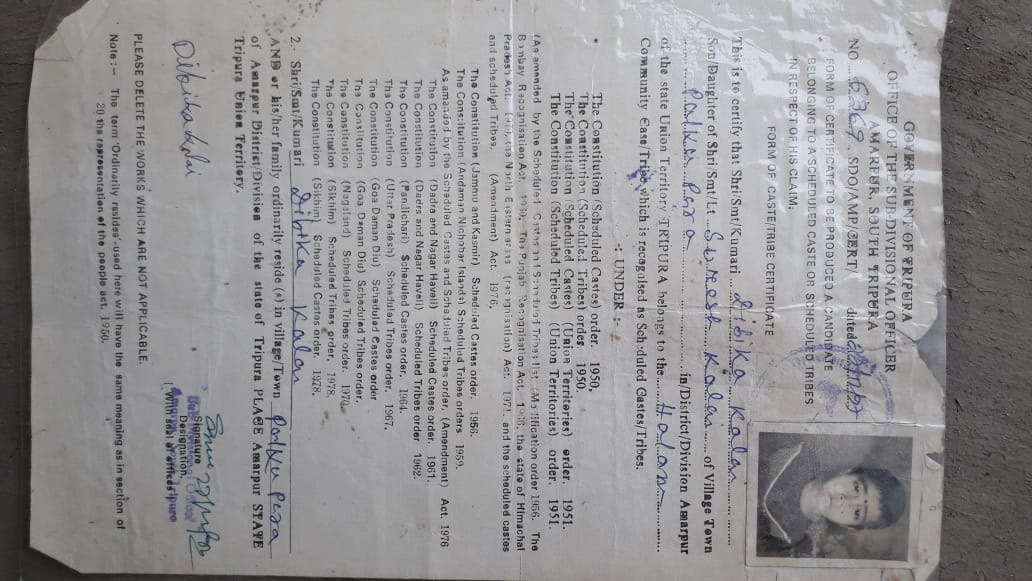 GOVERNMENT OF TRIPURA
OFFICE OF THE SUBDIVISIONAL OFFICER
AMARPUR, SOUTH TRIPURA
NO 6369 SDO/AMP/CERT/ dated
FORM OF CERTIFICATE TO BE PRODUCED A CANDIDATE
BELONGING TO A SCHEDULED CASTE OR SCHEDULED TRIBES
IN RESPECT OF HIS CLAIM.
FORM OF CASTE/TRIBE CERTIFICATE
This is to certify that Shri/Smt/Kumari Dibika Kalai
Son/Daughter of Shri/Smt/Lt. Suresh Kalai of Village Town
Para in/District/Division Amarpur
of the state Union Territory TRIPURA belongs to the Halam
Community Caste/Tribe which is recognised as Scheduled Castes/Tribes.
:- UNDER :-
The Constitution (Scheduled Castes) order. 1950.
The Constitution (Scheduled Tribes) order 1950.
The Constitution (Scheduled Castes) (Union Territories) order. 1951.
The Constitution (Scheduled Tribes) (Union Territories) order. 1951.
(As amended by the Scheduled Castes and Scheduled Tribes list (Modification order 1956. The
Bombay Recognisation Act, The Punjab Recognisation Act, the state of Himachal
Pradesh Act, the North Eastern areas Act. 1971. and the scheduled castes
and scheduled Tribes. (Amendment) Act. 1976.
The Constitution (Jammu and Kasmir) Scheduled Castes order. 1956.
The Constitution (Andaman Nichobar Islands) Scheduled Tribes orders 1959.
As amanded by the Scheduled Castes and Scheduled Tribes order, (Amendment) Act. 1976
The Constitution (Dadra and Nagar Haveli) Scheduled Castes order. 1961.
The Constitution (Dadra and Nagar Haveli) Scheduled Tribes order 1962.
The Constitution Scheduled Castes order. 1964.
The Constitution (Uttar Pradesh) Scheduled Tribes order. 1967.
The Constitution (Goa Daman Diu) Scheduled Castes order
The Constitution (Goa Daman Diu) Scheduled Tribes order.
The Constitution (Nagaland) Scheduled Tribes order. 1970.
The Constitution (Sikhim) Scheduled Tribes order, 1978.
The Constitution (Sikhim) Scheduled Castes order. 1978.
2. Shri/Smt/Kumari Dibika Kalai
AND or his/her family ordinarily reside (s) in village/Town Para
of Amarpur District/Division of the state of Tripura PLACE Amarpur STATE
Tripura Union Territory.
Dibika Kalai
Signature
Designation.
(With seal of offices)
PLEASE DELETE THE WORKS WHICH ARE NOT APPLICABLE
Note :- The term 'Ordinarily resides' used here will have the same meaning as in section of
20 the representation of the people act, 1950.